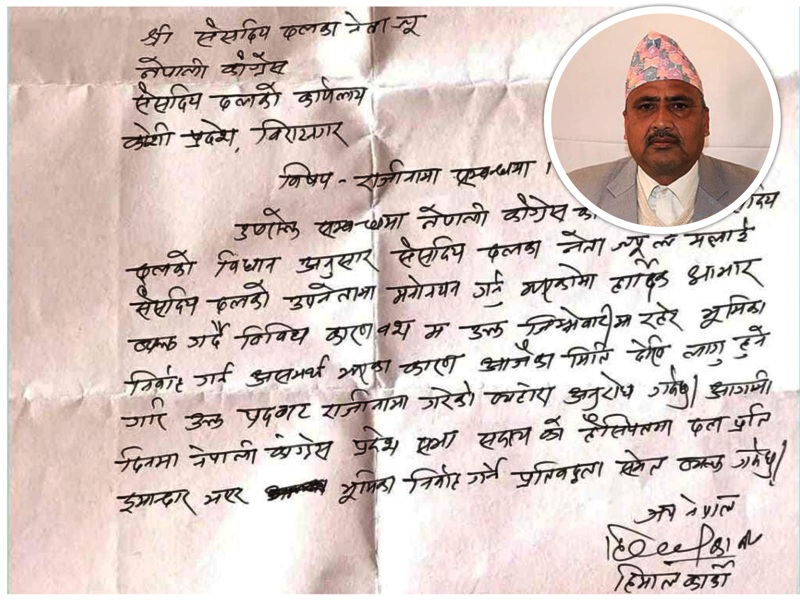 श्री संसदिय दलका नेता ज्यू
नेपाली काँग्रेस
संसदिय दलको कार्यलाय
कोशी प्रदेश, विराटनगर
विषय - राजीनामा सम्बन्धमा ।
उपरोक्त सम्बन्धमा नेपाली काँग्रेस को
दलको विधान अनुसार संसदिय दलका नेता ज्यू ले मलाई
संसदिय दलको उपनेतामा मनोनयन गर्नु भएकोमा हार्दिक आभार
व्यक्त गर्दै विविध कारण वश म उक्त जिम्मेवारीमा रहेर भूमिका
निर्वाह गर्न असमर्थ भएका कारण आजैका मिति देखि लागु हुने
गरि उक्त पदबाट राजीनामा गरेको व्यहोरा अनुरोध गर्दछु। आगामी
दिनमा नेपाली काँग्रेस प्रदेश सभा सदस्य को हैसियतमा दल प्रति
इमान्दार भएर भूमिका निर्वाह गर्ने प्रतिवद्धता समेत व्यक्त गर्दछु।
जय नेपाल
हिमाल कार्की